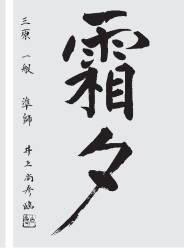 霜夕
三原 一敏 準師 井上尚彦臨